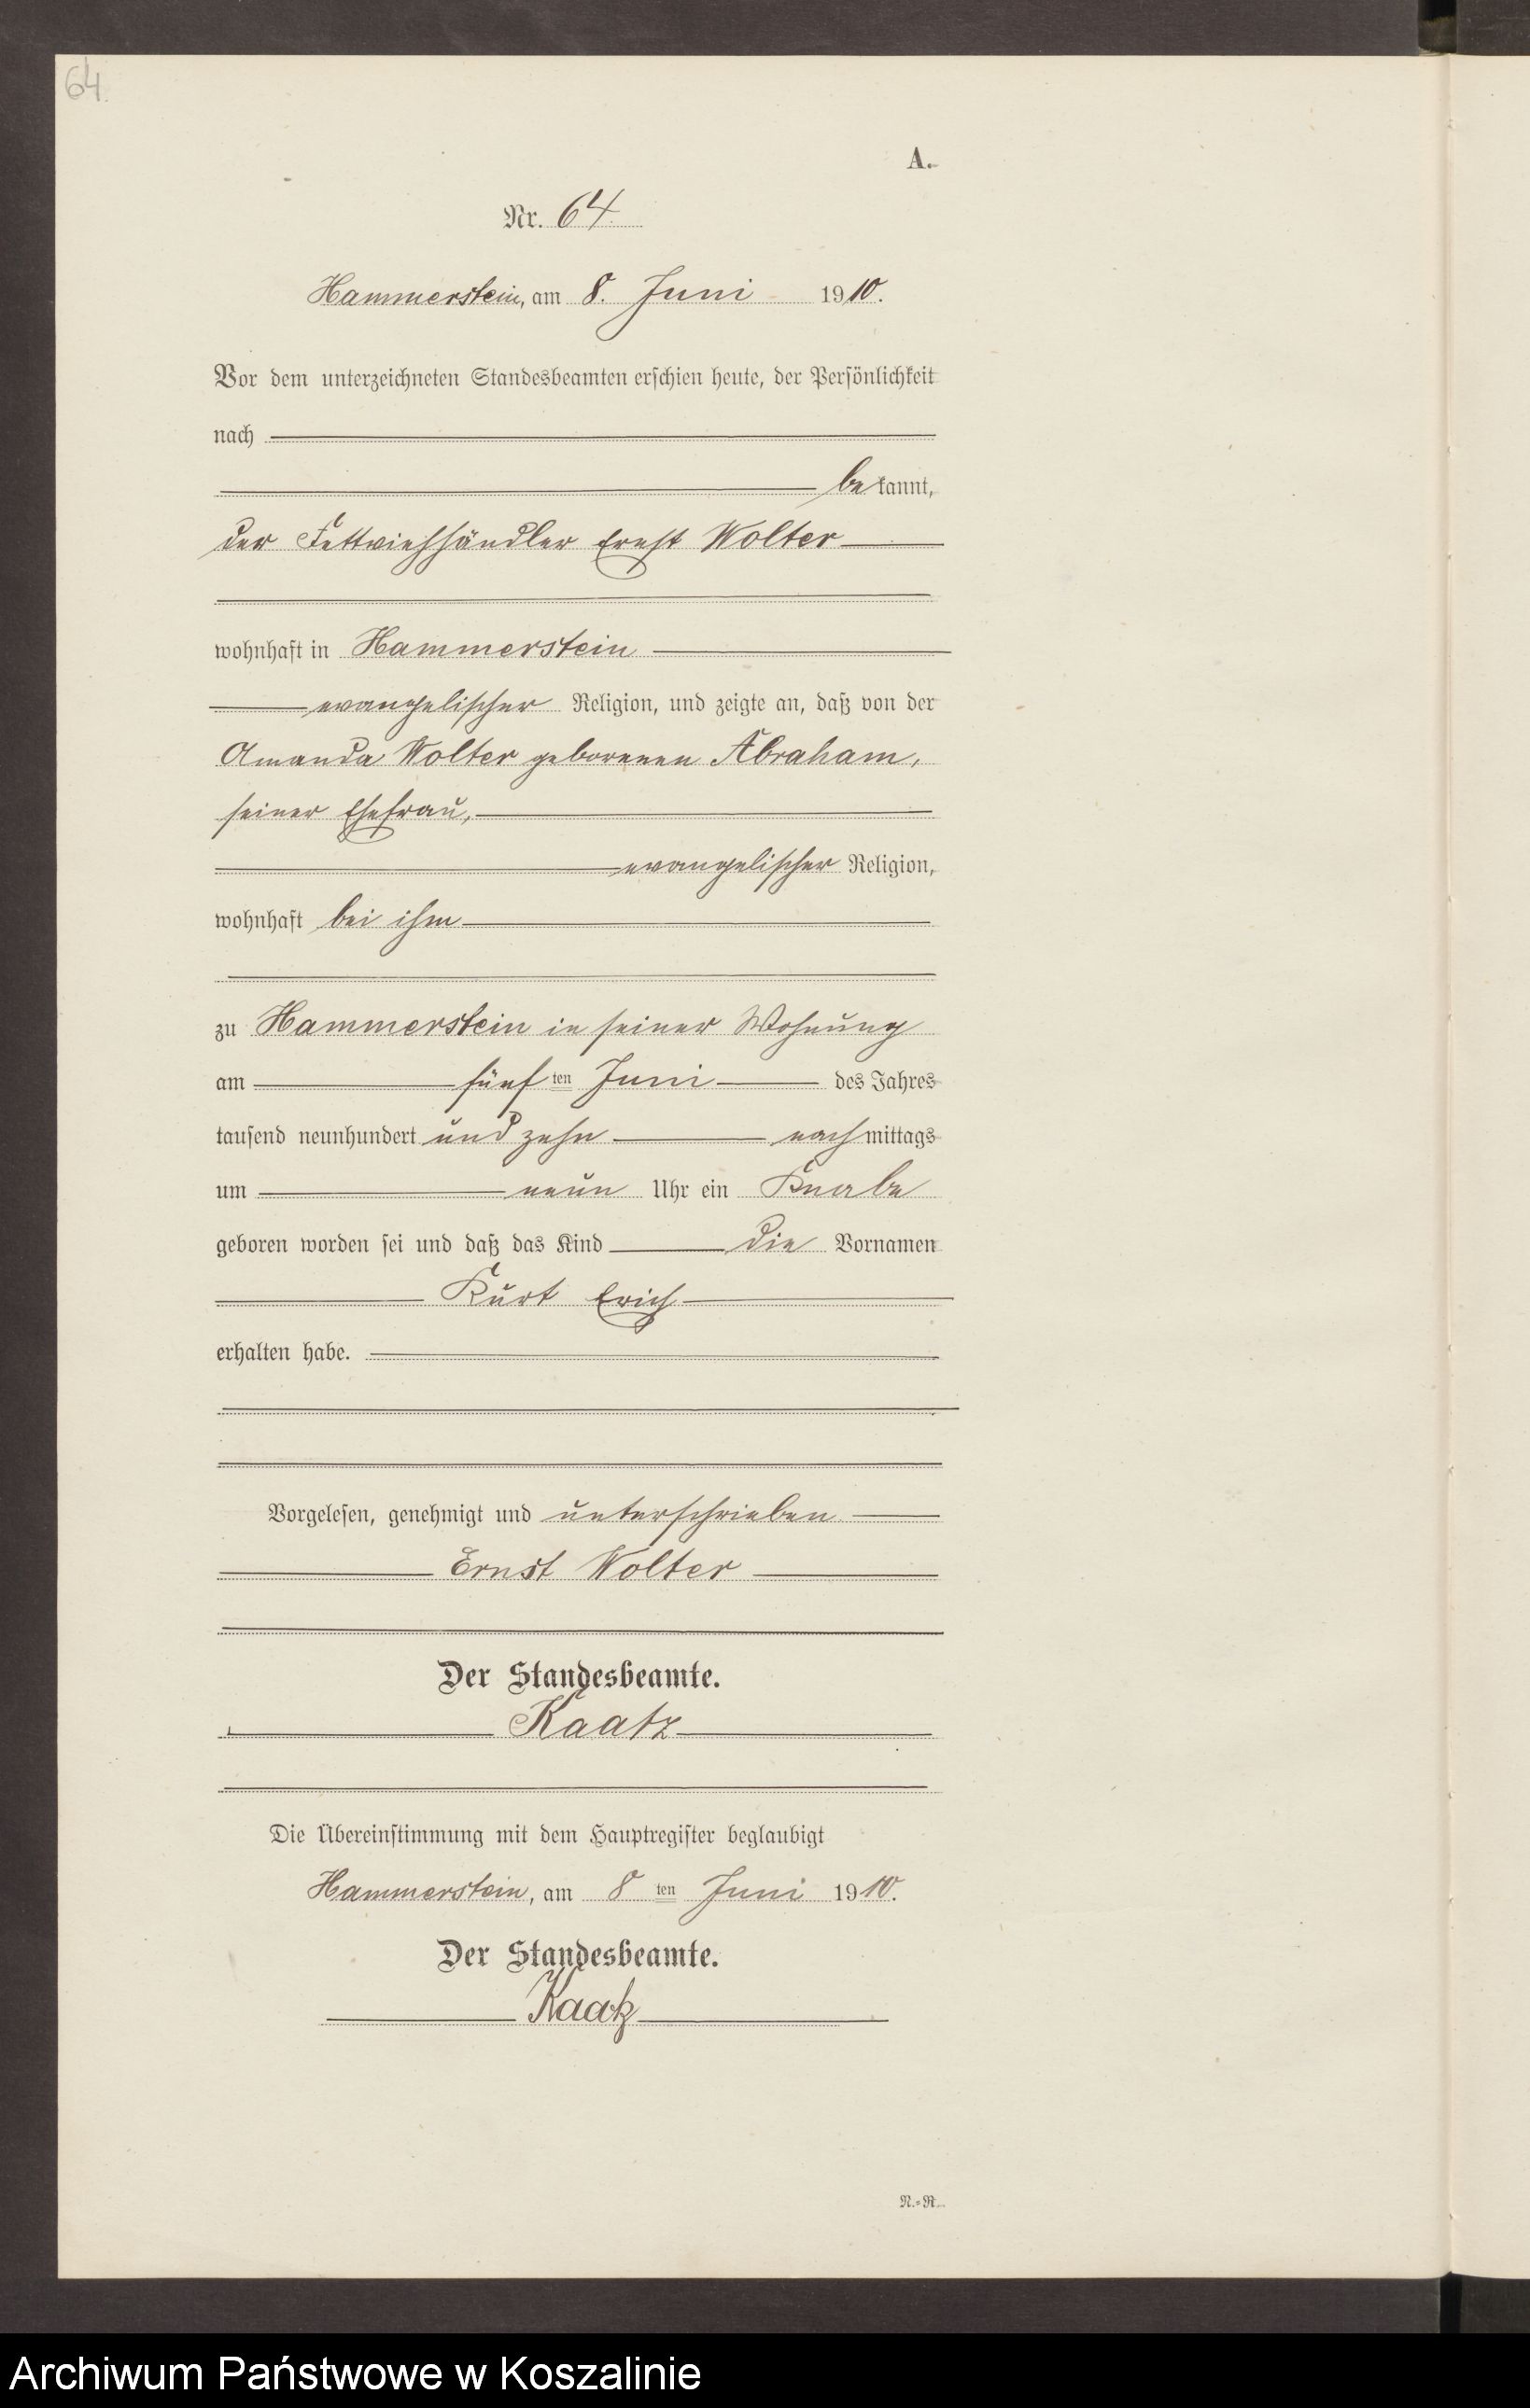 64.
A.
Nr. 64.
Hammerstein, am 8. Juni 1910.
Vor dem unterzeichneten Standesbeamten erschien heute, der Persönlichkeit
nach
bekannt,
der Fettviehhändler Ernst Wolter
wohnhaft in Hammerstein
evangelischer Religion, und zeigte an, daß von der
Amanda Wolter geborenen Abraham,
seiner Ehefrau,
evangelischer Religion,
wohnhaft bei ihm
zu Hammerstein in seiner Wohnung
am fünften Juni des Jahres
tausend neunhundert und zehn nachmittags
um neun Uhr ein Knabe
geboren worden sei und daß das Kind die Vornamen
Kurt Erich
erhalten habe.
Vorgelesen, genehmigt und unterschrieben
Ernst Wolter
Der Standesbeamte.
Kaatz
Die Übereinstimmung mit dem Hauptregister beglaubigt
Hammerstein, am 8ten Juni 1910.
Der Standesbeamte.
Kaatz
N.=R.
Archiwum Państwowe w Koszalinie